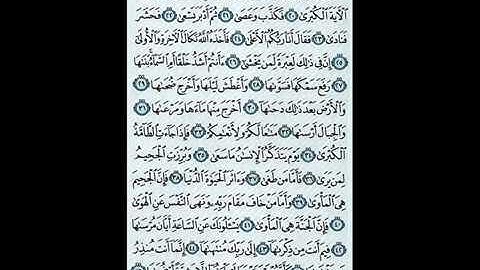 ٱلْءَايَةَ ٱلْكُبْرَىٰ ٢٠ فَكَذَّبَ وَعَصَىٰ ٢١ ثُمَّ أَدْبَرَ يَسْعَىٰ ٢٢ فَحَشَرَ
فَنَادَىٰ ٢٣ فَقَالَ أَنَا۠ رَبُّكُمُ ٱلْأَعْلَىٰ ٢٤ فَأَخَذَهُ ٱللَّهُ نَكَالَ ٱلْءَاخِرَةِ وَٱلْأُولَىٰٓ
٢٥ إِنَّ فِى ذَٰلِكَ لَعِبْرَةً لِّمَن يَخْشَىٰٓ ٢٦ ءَأَنتُمْ أَشَدُّ خَلْقًا أَمِ ٱلسَّمَآءُ بَنَىٰهَا
٢٧ رَفَعَ سَمْكَهَا فَسَوَّىٰهَا ٢٨ وَأَغْطَشَ لَيْلَهَا وَأَخْرَجَ ضُحَىٰهَا ٢٩
وَٱلْأَرْضَ بَعْدَ ذَٰلِكَ دَحَىٰهَآ ٣٠ أَخْرَجَ مِنْهَا مَآءَهَا وَمَرْعَىٰهَا ٣١
وَٱلْجِبَالَ أَرْسَىٰهَا ٣٢ مَتَٰعًا لَّكُمْ وَلِأَنْعَٰمِكُمْ ٣٣ فَإِذَا جَآءَتِ ٱلطَّآمَّةُ
ٱلْكُبْرَىٰ ٣٤ يَوْمَ يَتَذَكَّرُ ٱلْإِنسَٰنُ مَا سَعَىٰ ٣٥ وَبُرِّزَتِ ٱلْجَحِيمُ
لِمَن يَرَىٰ ٣٦ فَأَمَّا مَن طَغَىٰ ٣٧ وَءَاثَرَ ٱلْحَيَوٰةَ ٱلدُّنْيَا ٣٨ فَإِنَّ ٱلْجَحِيمَ
هِىَ ٱلْمَأْوَىٰ ٣٩ وَأَمَّا مَنْ خَافَ مَقَامَ رَبِّهِۦ وَنَهَى ٱلنَّفْسَ عَنِ ٱلْهَوَىٰ
٤٠ فَإِنَّ ٱلْجَنَّةَ هِىَ ٱلْمَأْوَىٰ ٤١ يَسْـَٔلُونَكَ عَنِ ٱلسَّاعَةِ أَيَّانَ مُرْسَىٰهَا
٤٢ فِيمَ أَنتَ مِن ذِكْرَىٰهَآ ٤٣ إِلَىٰ رَبِّكَ مُنتَهَىٰهَآ ٤٤ إِنَّمَآ أَنتَ مُنذِرُ